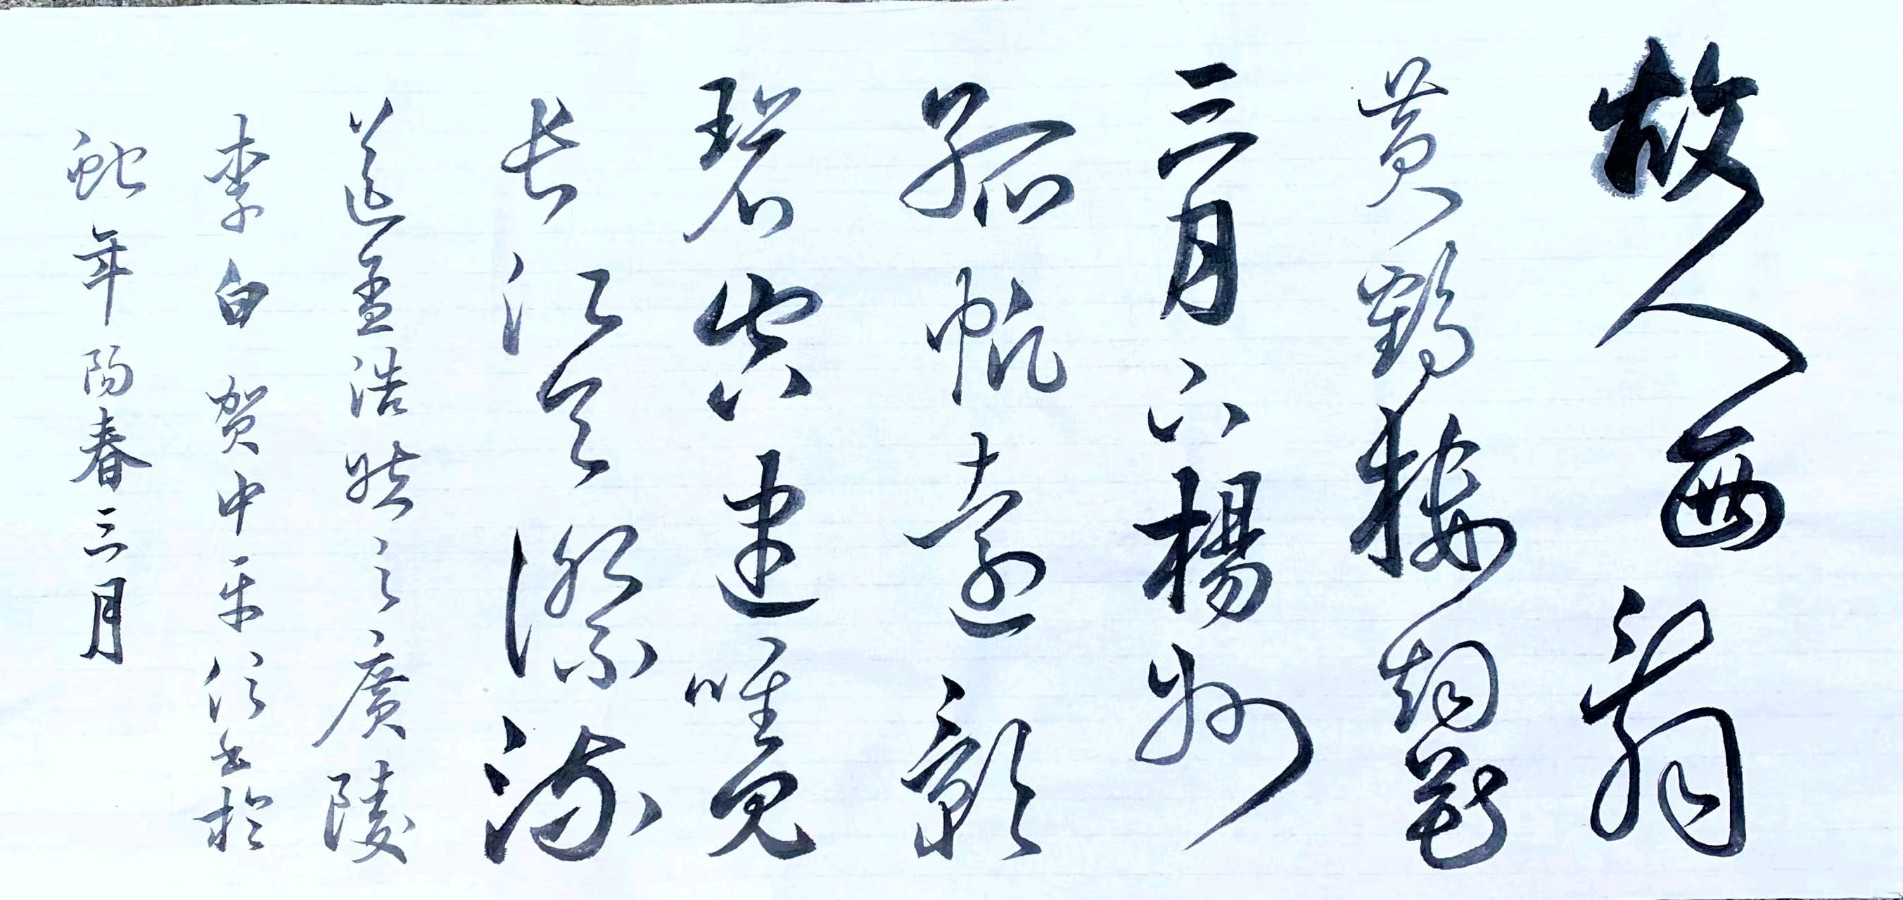 故人西辞
黄鹤楼烟花
三月下楊州
孤帆遠影
碧空盡唯見
长江天際流
送孟浩然之廣陵
李白 贺中平 书於
蛇年陽春三月